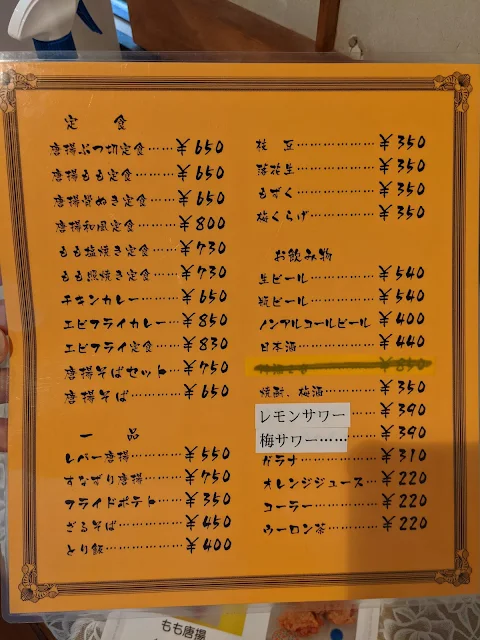 定食
唐揚ぶつ切定食……¥650
唐揚もも定食……¥650
唐揚骨ぬき定食……¥650
唐揚和風定食……¥800
もも塩焼き定食……¥730
もも照焼き定食……¥730
チキンカレー……¥650
エビフライカレー…¥850
エビフライ定食……¥830
唐揚そばセット…¥750
唐揚そば……¥650
一品
レバー唐揚……¥550
すなずり唐揚……¥750
フライドポテト……¥350
ざるそば……¥450
とり飯……¥400
枝豆……¥350
落花生……¥350
もずく……¥350
梅くらげ……¥350
お飲み物
生ビール……¥540
瓶ビール……¥540
ノンアルコールビール ¥400
日本酒……¥440
¥850
焼酎、梅酒……¥350
レモンサワー ¥390
梅サワー…… ¥390
ガラナ……¥310
オレンジジュース…¥220
コーラー……¥220
ウーロン茶……¥220
もも唐揚